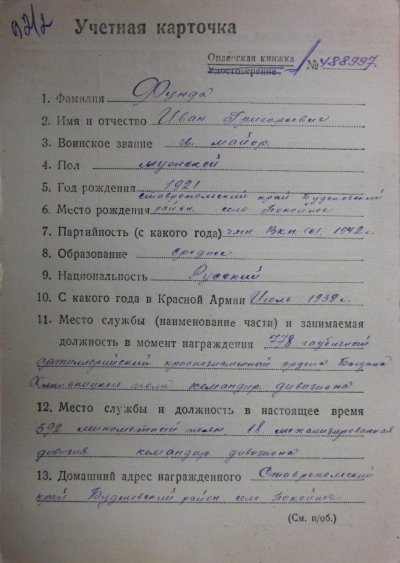 Учетная карточка
Орденская книжка
Удостоверение № 488997.
1. Фамилия Фунда
2. Имя и отчество Иван Григорьевич
3. Воинское звание гв. майор.
4. Пол мужской
5. Год рождения 1921
ставропольский край Буденовский
6. Место рождения район село Покойное
7. Партийность (с какого года) член ВКП(б) 1942 г.
8. Образование среднее
9. Национальность Русский
10. С какого года в Красной Армии Июль 1939 г.
11. Место службы (наименование части) и занимаемая
должность в момент награждения 778 гаубичный
артиллерийский краснознаменной ордена Богдана
Хмельницкого полк командир дивизиона
12. Место службы и должность в настоящее время
592 минометный полк 18 механизированная
дивизия командир дивизиона
13. Домашний адрес награжденного Ставропольский
край Буденовский район село Покойное
(См. н/об.)